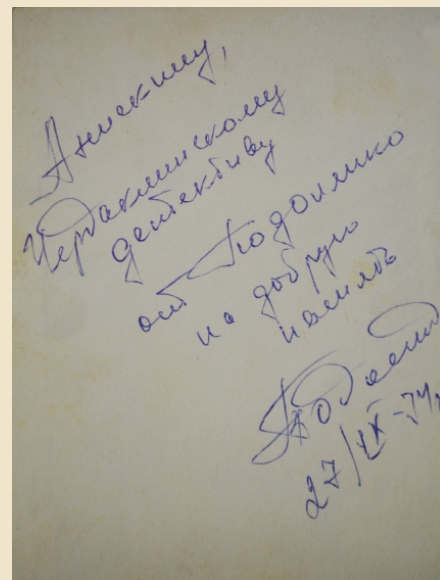 Анискину,
Чердаклинскому
детективу
от Подолинко
на добрую
память
27/IX-74,